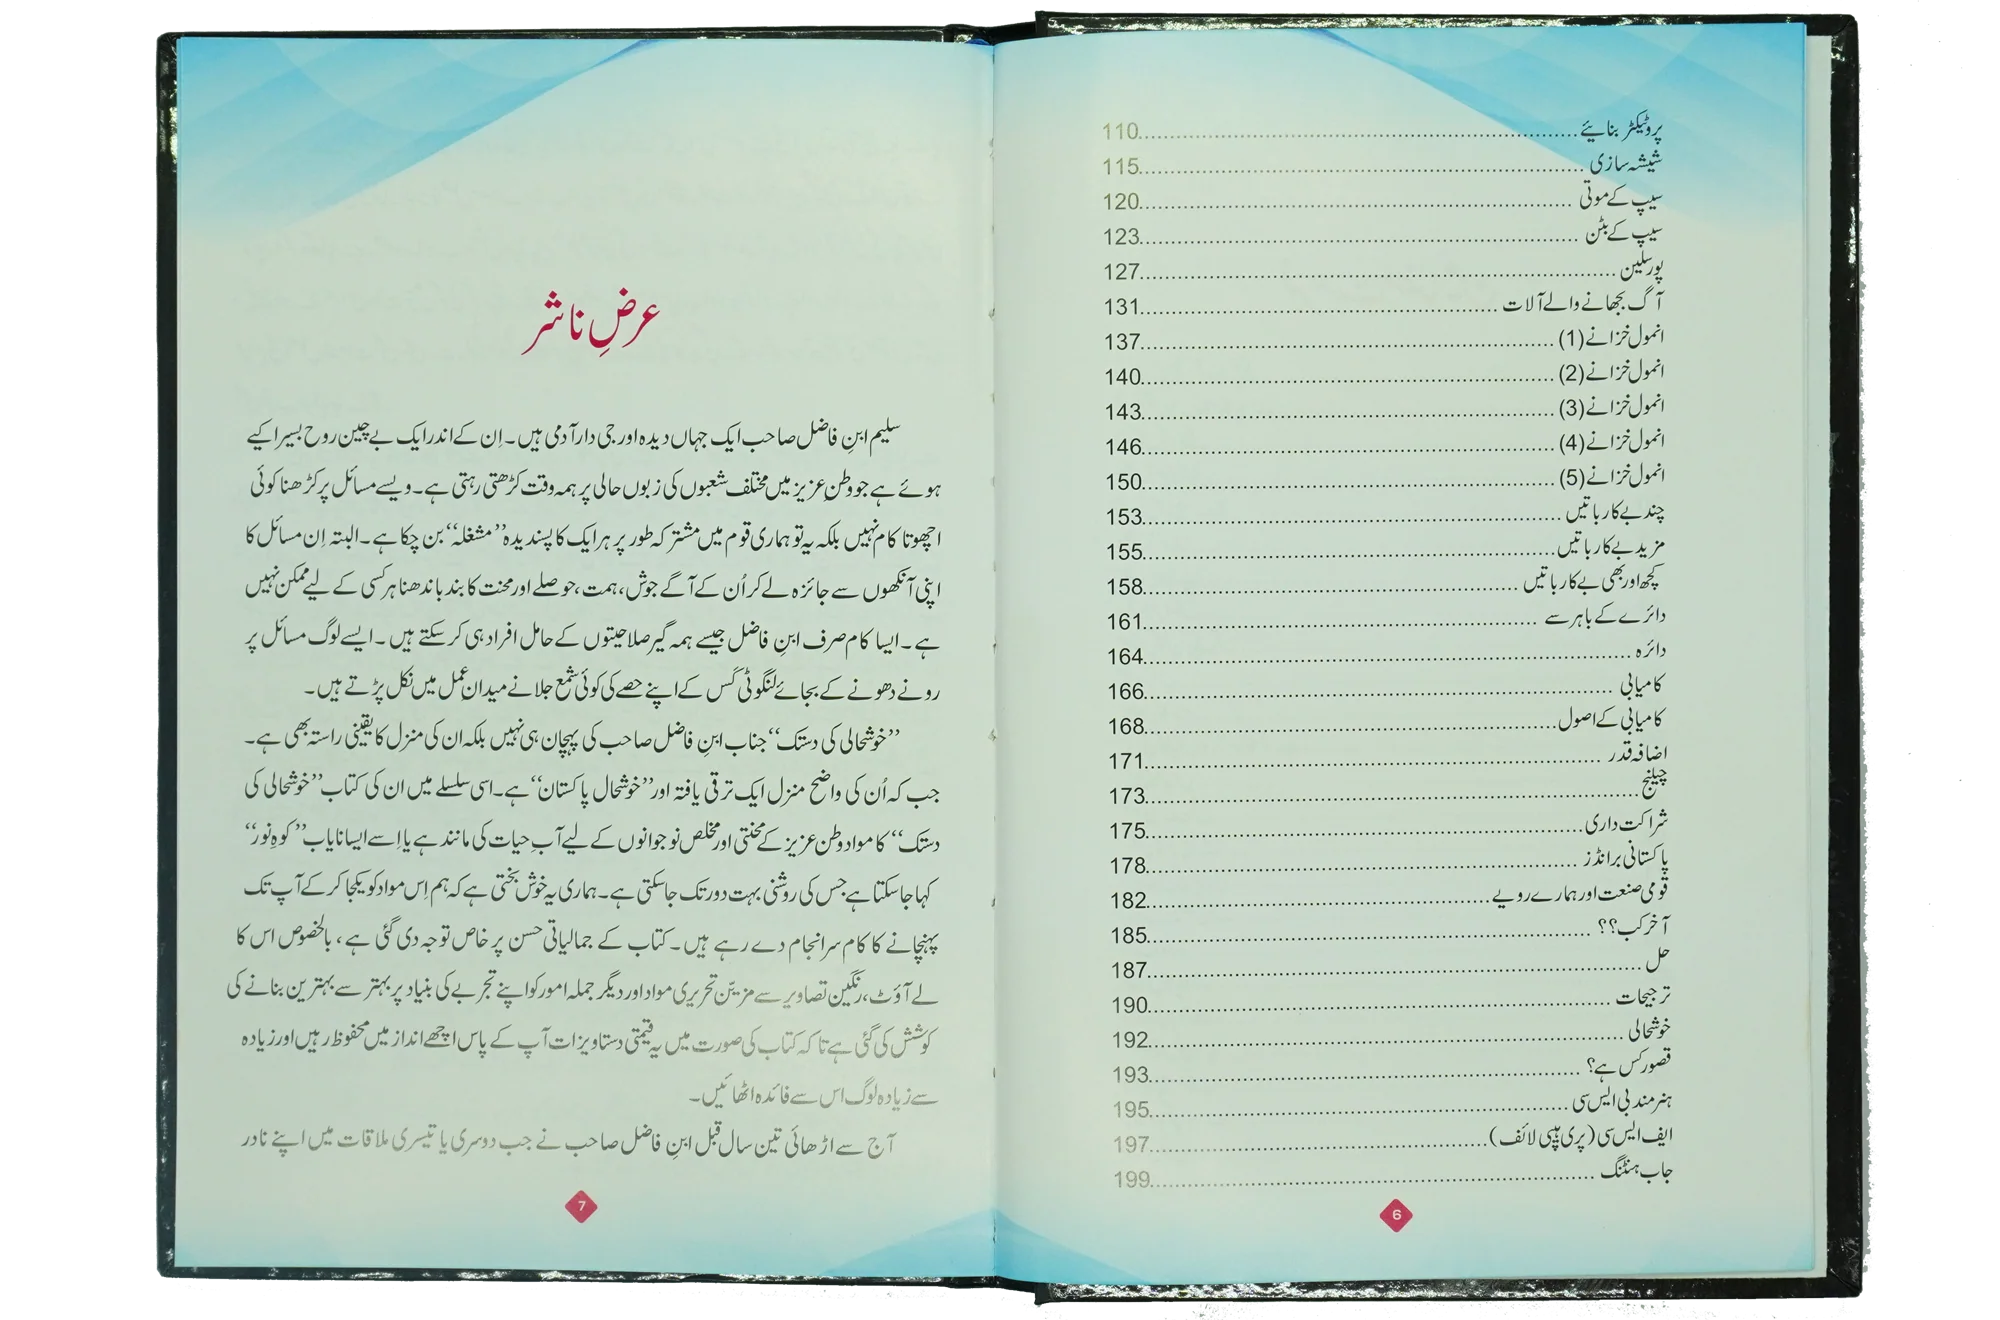 پروٹیکٹر بنایئے 110
شیشہ سازی 115
سیپ کے موتی 120
سیپ کے بٹن 123
پورسلین 127
آگ بجھانے والے آلات 131
انمول خزانے (1) 137
انمول خزانے (2) 140
انمول خزانے (3) 143
انمول خزانے (4) 146
انمول خزانے (5) 150
چند بے کار باتیں 153
مزید بے کار باتیں 155
کچھ اور بھی بے کار باتیں 158
دائرے کے باہر سے 161
دائرہ 164
کامیابی 166
کامیابی کے اصول 168
اضافہ قدر 171
چیلنج 173
شراکت داری 175
پاکستانی برانڈز 178
قومی صنعت اور ہمارے رویے 182
آخر کب؟؟ 185
حل 187
ترجیحات 190
خوشحالی 192
قصور کس ہے؟ 193
ہنرمند بی ایس سی 195
ایف ایس سی (پری ہیپی لائف) 197
جاب ہنٹنگ 199
6
عرضِ ناشر
سلیم ابنِ فاضل صاحب ایک جہاں دیدہ اور جی دار آدمی ہیں۔ اِن کے اندر ایک بے چین روح بسیرا کیے
ہوئے ہے جو وطنِ عزیز میں مختلف شعبوں کی زبوں حالی پر ہمہ وقت کڑھتی رہتی ہے۔ ویسے مسائل پر کڑھنا کوئی
اچھوتا کام نہیں بلکہ یہ تو ہماری قوم میں مشترکہ طور پر ہر ایک کا پسندیدہ ”مشغلہ“ بن چکا ہے۔ البتہ اِن مسائل کا
اپنی آنکھوں سے جائزہ لے کر اُن کے آگے جوش، ہمت، حوصلے اور محنت کا بند باندھنا ہر کسی کے لیے ممکن نہیں
ہے۔ ایسا کام صرف ابنِ فاضل جیسے ہمہ گیر صلاحیتوں کے حامل افراد ہی کر سکتے ہیں۔ ایسے لوگ مسائل پر
رونے دھونے کے بجائے لنگوٹی کَس کے اپنے حصے کی کوئی شمع جلانے میدانِ عمل میں نکل پڑتے ہیں۔
”خوشحالی کی دستک“ جناب ابنِ فاضل صاحب کی پہچان ہی نہیں بلکہ ان کی منزل کا یقینی راستہ بھی ہے۔
جب کہ اُن کی واضح منزل ایک ترقی یافتہ اور ”خوشحال پاکستان“ ہے۔ اسی سلسلے میں ان کی کتاب ”خوشحالی کی
دستک“ کا مواد وطن عزیز کے محنتی اور مخلص نوجوانوں کے لیے آبِ حیات کی مانند ہے یا اِسے ایسا نایاب ”کوہِ نور“
کہا جا سکتا ہے جس کی روشنی بہت دور تک جا سکتی ہے۔ ہماری یہ خوش بختی ہے کہ ہم اِس مواد کو یکجا کر کے آپ تک
پہنچانے کا کام سرانجام دے رہے ہیں۔ کتاب کے جمالیاتی حسن پر خاص توجہ دی گئی ہے، بالخصوص اس کا
لے آؤٹ، رنگین تصاویر سے مزین تحریری مواد اور دیگر جملہ امور کو اپنے تجربے کی بنیاد پر بہتر سے بہترین بنانے کی
کوشش کی گئی ہے تا کہ کتاب کی صورت میں یہ قیمتی دستاویزات آپ کے پاس اچھے انداز میں محفوظ رہیں اور زیادہ
سے زیادہ لوگ اس سے فائدہ اٹھائیں۔
آج سے اڑھائی تین سال قبل ابنِ فاضل صاحب نے جب دوسری یا تیسری ملاقات میں اپنے نادر
7